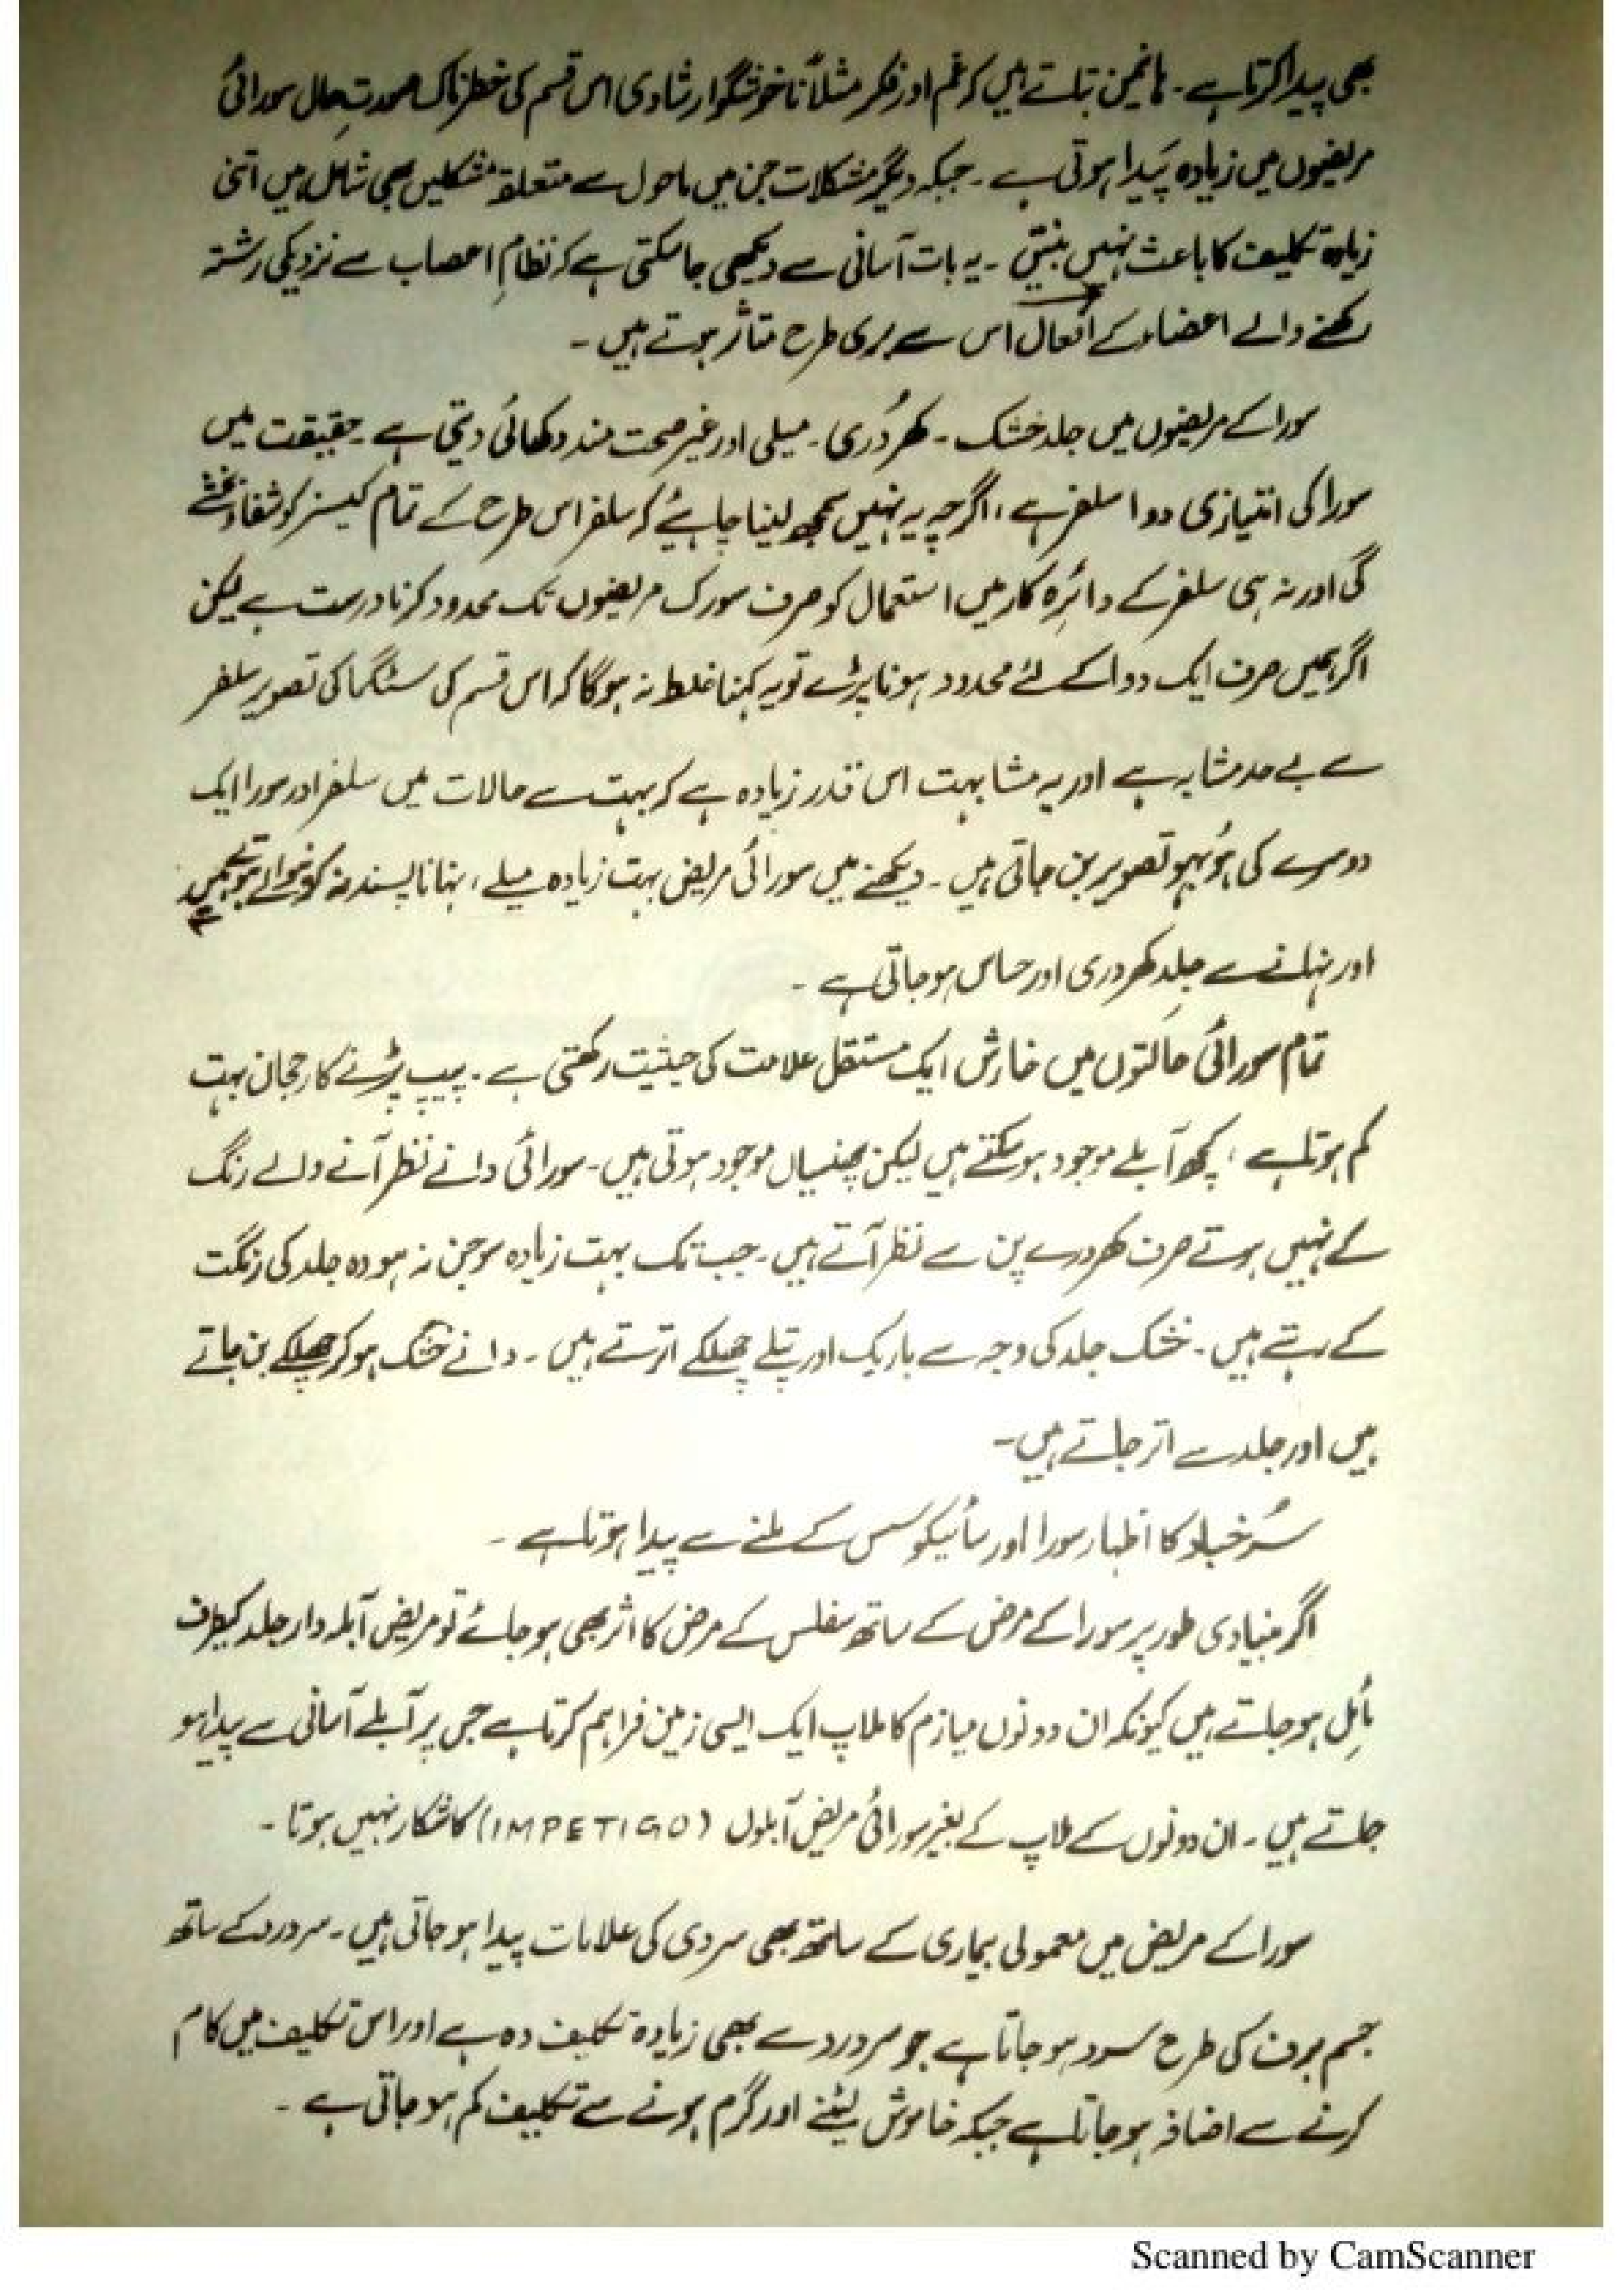 بھی پیدا کرتا ہے۔ ہانیمن بتاتے ہیں کہ غم اور فکر مثلاً ناخوشگوار شادی اس قسم کی خطرناک صورتِ حال سورائی
مریضوں میں زیادہ پَیدا ہوتی ہے۔ جبکہ دیگر مشکلات جن میں ماحول سے متعلقہ مشکلیں بھی شامل ہیں اتنی
زیادہ تکلیف کا باعث نہیں بنتیں۔ یہ بات آسانی سے دیکھی جا سکتی ہے کہ نظامِ اعصاب سے نزدیکی رشتہ
رکھنے والے اعضاء کے افعال اس سے بری طرح متاثر ہوتے ہیں۔
سورا کے مریضوں میں جلد خشک۔ کھُردری۔ میلی اور غیر صحت مند دکھائی دیتی ہے۔ حقیقت میں
سورا کی امتیازی دوا سلفر ہے، اگرچہ یہ نہیں سمجھ لینا چاہئے کہ سلفر اس طرح کے تمام کیسز کو شفاء بخشے
گی اور نہ ہی سلفر کے دائرِہ کار میں استعمال کو صرف سورک مریضوں تک محدود کرنا درست ہے لیکن
اگر ہمیں صرف ایک دوا کے لئے محدود ہونا پڑے تو یہ کہنا غلط نہ ہوگا کہ اس قسم کی سٹگما کی تصویر سلفر
سے بے حد مشابہ ہے اور یہ مشابہت اس قدر زیادہ ہے کہ بہت سے حالات میں سلفر اور سورا ایک
دوسرے کی ہُوبہو تصویر بن جاتی ہیں۔ دیکھنے میں سورائی مریض بہت زیادہ میلے، نہانا ناپسند نہ کرنے والے ہوتے ہیں
اور نہانے سے جِلد کھردری اور حساس ہو جاتی ہے۔
تمام سورائی حالتوں میں خارش ایک مستقل علامت کی حیثیت رکھتی ہے۔ پیپ پڑنے کا رجحان بہت
کم ہوتا ہے، کچھ آبلے موجود ہو سکتے ہیں لیکن پھنسیاں موجود ہوتی ہیں۔ سورائی دانے نظر آنے والے رنگ
کے نہیں ہوتے صرف کھردرے پن سے نظر آتے ہیں۔ جب تک بہت زیادہ سوجن نہ ہو وہ جلد کی رنگت
کے رہتے ہیں۔ خشک جلد کی وجہ سے باریک اور پتلے چھلکے اترتے ہیں۔ دانے خشک ہو کر چھلکے بن جاتے
ہیں اور جلد سے اتر جاتے ہیں۔
سُرخباد کا اظہار سورا اور سائیکوسس کے ملنے سے پیدا ہوتا ہے۔
اگر بنیادی طور پر سورا کے مرض کے ساتھ سفلس کے مرض کا اثر بھی ہو جائے تو مریض آبلہ دار جلد کیطرف
مائل ہو جاتے ہیں کیونکہ ان دونوں میازم کا ملاپ ایک ایسی زمین فراہم کرتا ہے جس پر آبلے آسانی سے پیدا ہو
جاتے ہیں۔ ان دونوں کے ملاپ کے بغیر سورائی مریض آبلوں (IMPETIGO) کا شکار نہیں ہوتا۔
سورا کے مریض میں معمولی بیماری کے ساتھ بھی سردی کی علامات پیدا ہو جاتی ہیں۔ سردرد کے ساتھ
جسم برف کی طرح سرد ہو جاتا ہے جو سردرد سے بھی زیادہ تکلیف دہ ہے اور اس تکلیف میں کام
کرنے سے اضافہ ہو جاتا ہے جبکہ خاموش لیٹنے اور گرم ہونے سے تکلیف کم ہو جاتی ہے۔
Scanned by CamScanner